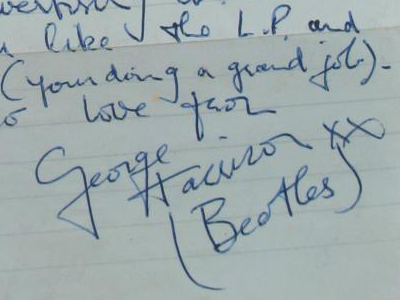 like the L.P. and
(your doing a grand job).
love from
George
Harrison xx
(Beatles)